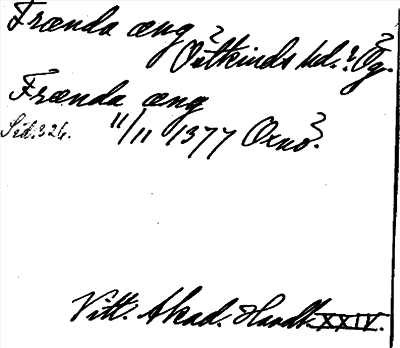 Frænda æng ?
Östkinds hd. ? Ög. ?
Frænda æng
Sid. 326. 11/11 1377 Oxnö. ?
Vitt. Akad. Handl. XXIV.